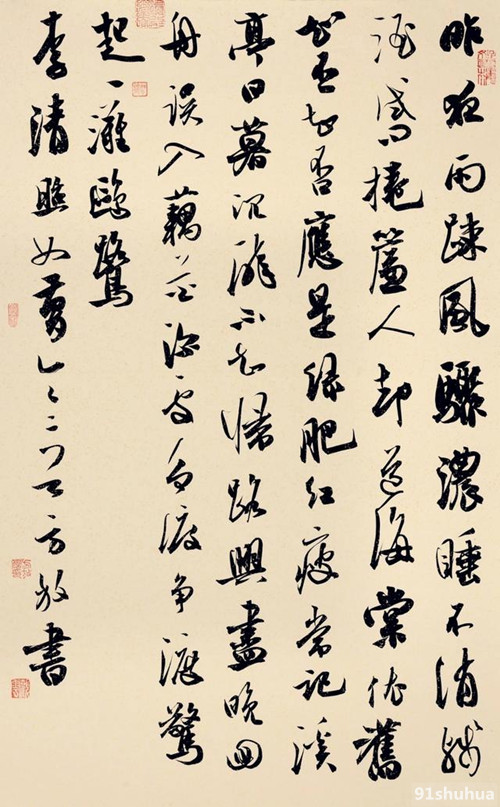 昨夜雨疎風驟濃睡不消殘
酒試問捲簾人却道海棠依舊
知否知否應是綠肥紅瘦常記溪
亭日暮沉醉不知歸路興盡晚回
舟誤入藕花深處争渡争渡驚
起一灘鷗鷺
李清照如夢令二方放書
91shuhua